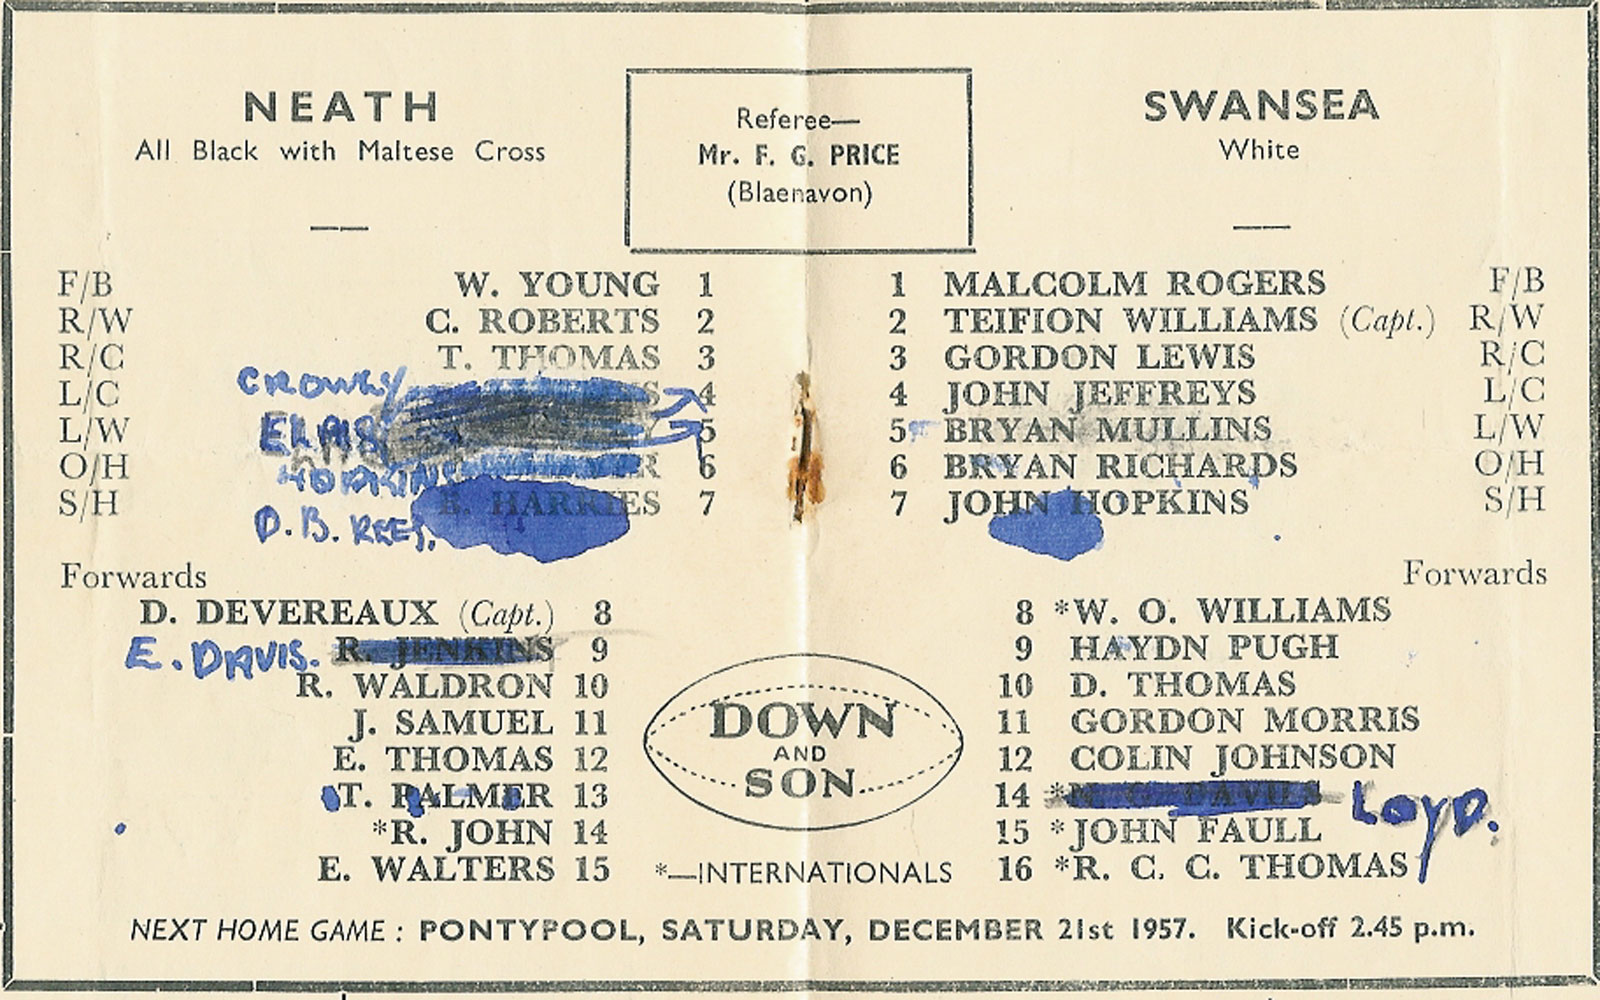 NEATH
All Black with Maltese Cross
Referee—
Mr. F. G. PRICE
(Blaenavon)
SWANSEA
White
F/B W. YOUNG 1
R/W C. ROBERTS 2
R/C T. THOMAS 3
L/C 4
L/W 5
O/H HOPKINS 6
S/H D. B. REES. R. HARRIES 7
1 MALCOLM ROGERS F/B
2 TEIFION WILLIAMS (Capt.) R/W
3 GORDON LEWIS R/C
4 JOHN JEFFREYS L/C
5 BRYAN MULLINS L/W
6 BRYAN RICHARDS O/H
7 JOHN HOPKINS S/H
Forwards
D. DEVEREAUX (Capt.) 8
E. DAVIS. R. JENKINS 9
R. WALDRON 10
J. SAMUEL 11
E. THOMAS 12
T. PALMER 13
*R. JOHN 14
E. WALTERS 15
DOWN
AND
SON
*—INTERNATIONALS
Forwards
8 *W. O. WILLIAMS
9 HAYDN PUGH
10 D. THOMAS
11 GORDON MORRIS
12 COLIN JOHNSON
14 *N. G. DAVIES LOYD.
15 *JOHN FAULL
16 *R. C. C. THOMAS
NEXT HOME GAME : PONTYPOOL, SATURDAY, DECEMBER 21st 1957. Kick-off 2.45 p.m.